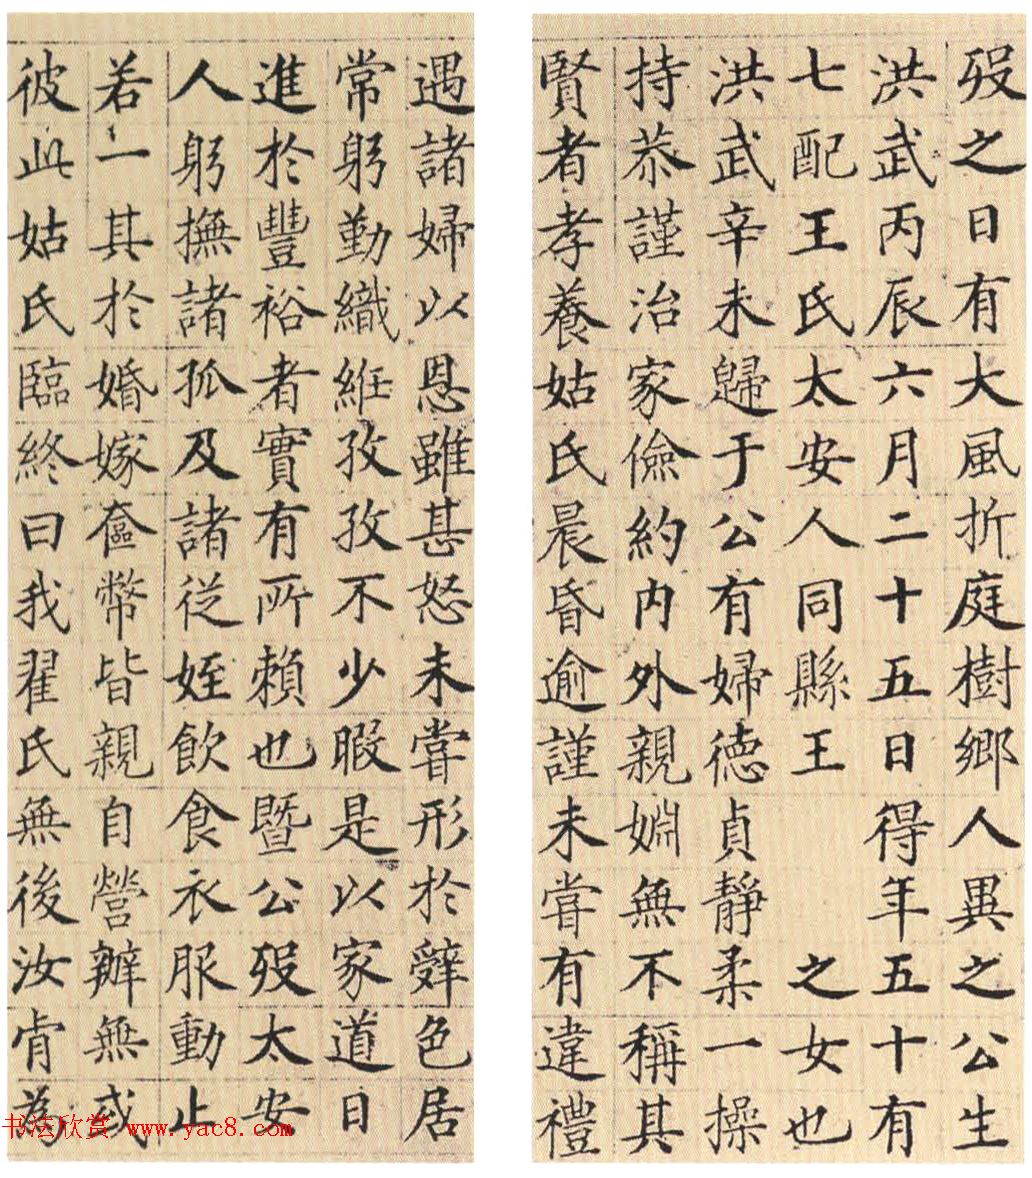 歿之日有大風折庭樹鄉人異之公生
洪武丙辰六月二十五日得年五十有
七配王氏太安人同縣王 之女也
洪武辛未歸于公有婦德貞靜柔一操
持恭謹治家儉約內外親婣無不稱其
賢者孝養姑氏晨昏逾謹未嘗有違禮
遇諸婦以恩雖甚怒未嘗形於辭色居
常躬勤織紝孜孜不少暇是以家道日
進於豐裕者實有所賴也暨公歿太安
人躬撫諸孤及諸從姪飲食衣服動止
若一其於婚嫁奩幣皆親自營辦無或
彼此姑氏臨終曰我翟氏無後汝肯為
书法欣赏 www.yac8.com